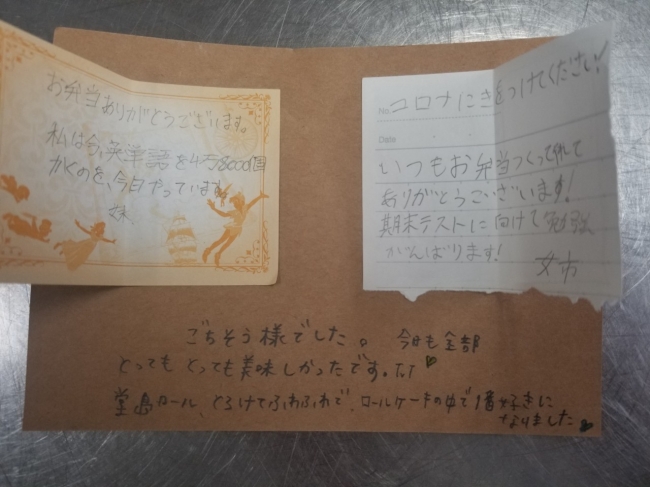 お弁当ありがとうございます。
私は今、英単語を4万8000個
かくのを、今日やっています
妹
No.
コロナにきをつけてください!
Date
いつもお弁当つくってくれて
ありがとうございます!
期末テストに向けて勉強
がんばります!
ごちそう様でした。今日も全部
とってもとっても美味しかったです。
堂島ロール、とろけてふわふわで、ロールケーキの中で1番好きに
なりました